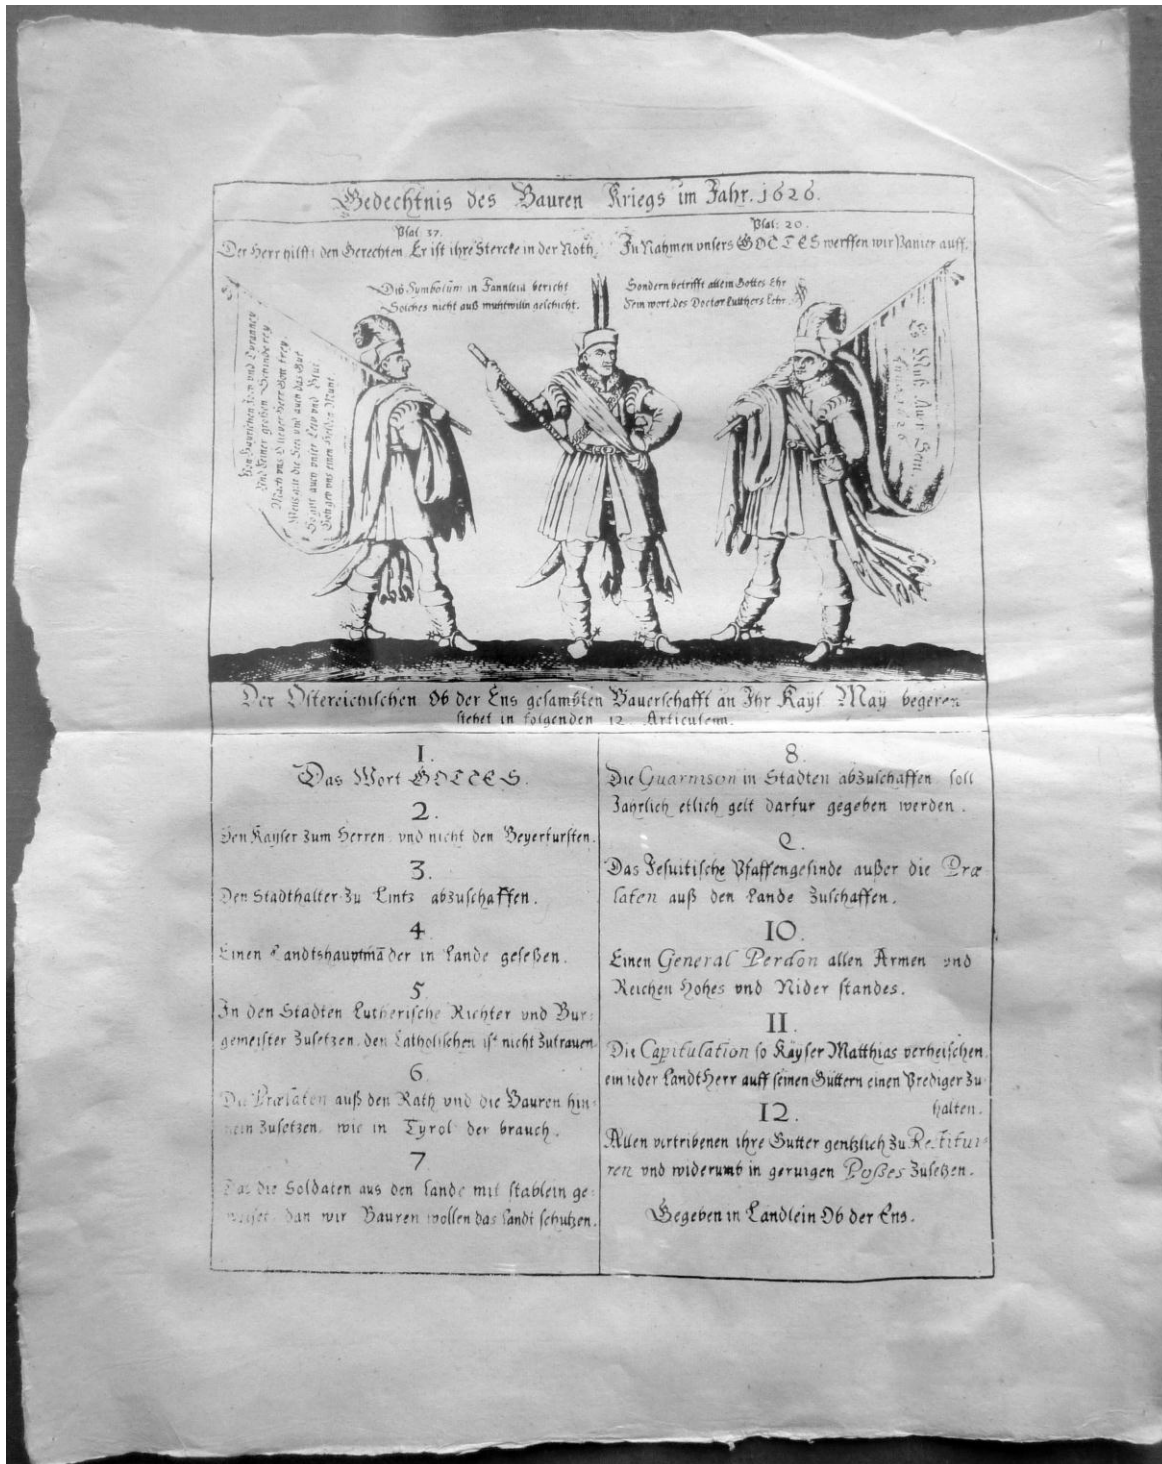 Gedechtnis des Bauren Kriegs im Jahr. 1626.
Psal. 37.
Der Herr hilfft den Gerechten. Er ist ihre Stercke in der Noth.
Psal: 20.
In Nahmen unsers GOTTES werffen wir Panier auff.
Dis Symbolum in Fannlein bericht
Solches nicht auß muhtwilln geschicht.
Sondern betrifft allein Gottes Ehr
Sein wort, des Doctor Lutthers Lehr
Von Bayrischen Joch und Tyranney
Und seiner großen Schinderey
Mach uns O lieber Herr Gott frey.
Weils gilt die Seel und auch das Gut
So gilt auch unser Leib und Blut
Gott geb uns einen Helden Muht
Es Muß Also Sein.
Anno 1626
Der Östereichischen Ob der Ens gesambten Bauerschafft an Ihr Kaÿs. May begeren
stehet in folgenden 12. Articulenn.
1.
Das Wort GOTTES.
2.
Den Kayser zum Herren vnd nicht den Beyerfursten.
3.
Den Stadthalter zu Lintz abzuschaffen.
4
Einen Landtshauptmā der in Lande geseßen.
5
In den Städten Lutherische Richter vnd Bur:
gemeister Zusetzen, den Catholischen ist nicht Zutrauen
6
Die Prælaten auß den Rath vnd die Bauren hin:
nein Zusetzen, wie in Tyrol der brauch.
7
Das die Soldaten aus den Lande mit stablein ge:
weiset, dan wir Bauren wollen das Landt schutzen.
8.
Die Guarnison in Städten abzuschaffen soll
Jahrlich etlich gelt darfur gegeben werden.
9.
Das Jesuitische Pfaffengesinde außer die Præ
laten auß den Lande Zuschaffen.
10.
Einen General Perdon allen Armen vnd
Reichen Hohes vnd Nider standes.
11.
Die Capitulation so Käyser Matthias verheischen
ein ieder LandtHerr auff seinen Güttern einen Prediger Zu
halten.
12.
Allen vertribenen ihre Gutter gentzlich Zu Restitui:
ren vnd widerumb in geruigen Poßes Zusetzen.
Gegeben in Landlein Ob der Ens.